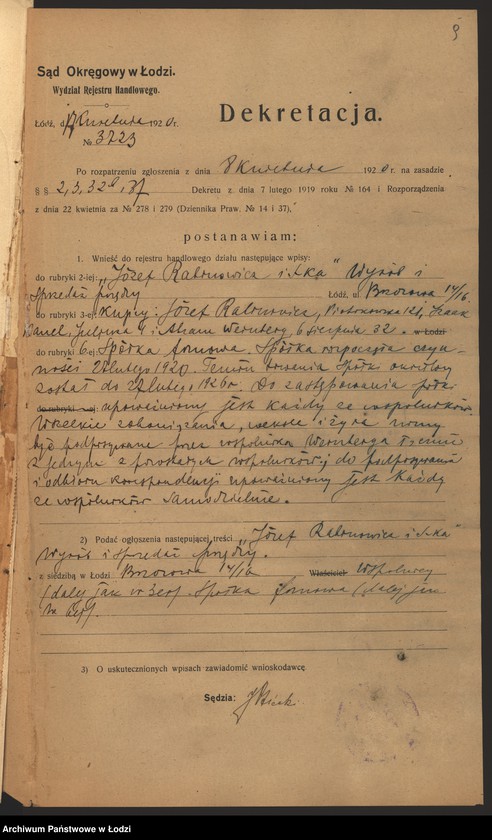 9
Sąd Okręgowy w Łodzi.
Wydział Rejestru Handlowego.
Łódź, d. 17 Kwietnia 1920 r.
№ 3723
Dekretacja.
Po rozpatrzeniu zgłoszenia z dnia 8 Kwietnia 1920 r. na zasadzie
§ § 2, 3, 32 Dekretu z dnia 7 lutego 1919 roku № 164 i Rozporządzenia
z dnia 22 kwietnia za № 278 i 279 (Dziennika Praw. № 14 i 37),
postanawiam:
1. Wnieść do rejestru handlowego działu następujące wpisy:
do rubryki 2-iej: „Józef Rabinowicz i S-ka" Wyrób i
sprzedaż Łódź, ul. Brzozowa 14/16.
do rubryki 3-ej: Kupcy: Józef Rabinowicz, Piotrkowska
i Abram Wernberg, 6 sierpnia 32. w Łodzi
do rubryki 6-ej Spółka firmowa. Spółka rozpoczęła czyn-
ności 21 lutego 1920. Termin trwania Spółki określony
został do 21 lutego 1926 r. Do zastępowania firmy
do rubryki -ej upoważniony jest każdy ze wspólników.
Wszelkie zobowiązania, weksle i żyra winny
być podpisywane przez wspólnika Wernberga łącznie
z jednym z pozostałych wspólników; do podpisywania
i odbioru korespondencji upoważniony jest Każdy
ze wspólników samodzielnie.
2) Podać ogłoszenia następującej treści „Józef Rabinowicz i S-ka"
Wyrób i sprzedaż
z siedzibą w Łodzi Brzozowa 14/16 Właściciel Wspólnicy
(dalej jak w 3ej). Spółka firmowa (dalej jak
w 6ej).
3) O uskutecznionych wpisach zawiadomić wnioskodawcę
Sędzia:
Archiwum Państwowe w Łodzi